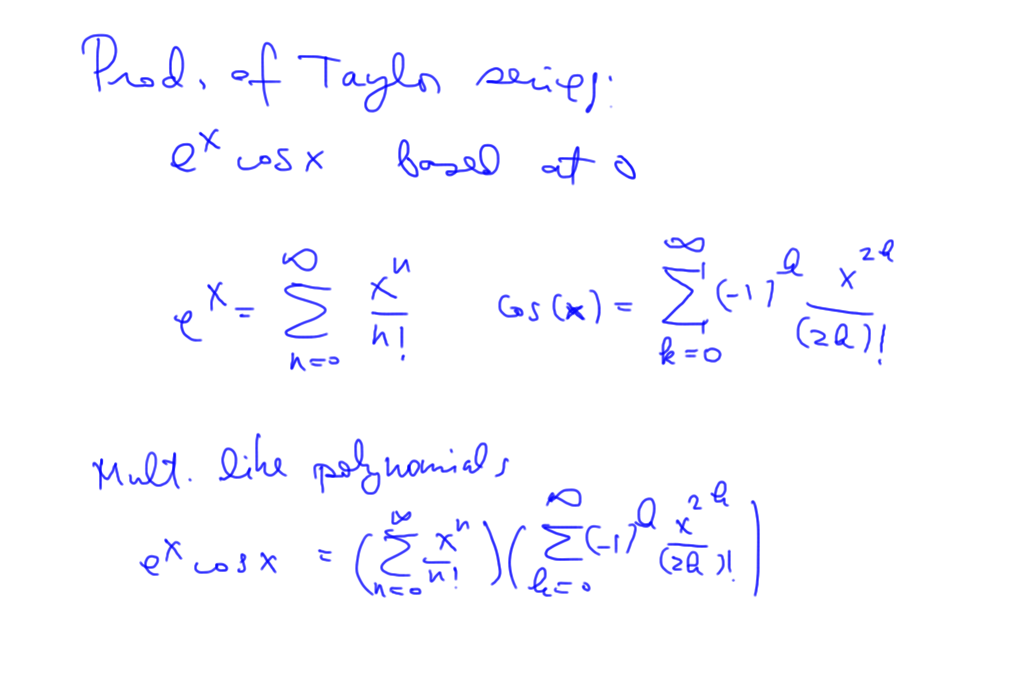 Prod. of Taylor series:
e^x cos x based at 0
e^x = ∑_{n=0}^{∞} x^n/n! cos(x) = ∑_{k=0}^{∞} (-1)^k x^{2k}/(2k)!
Mult. like polynomials
e^x cos x = (∑_{n=0}^{∞} x^n/n!)(∑_{k=0}^{∞} (-1)^k x^{2k}/(2k)!)